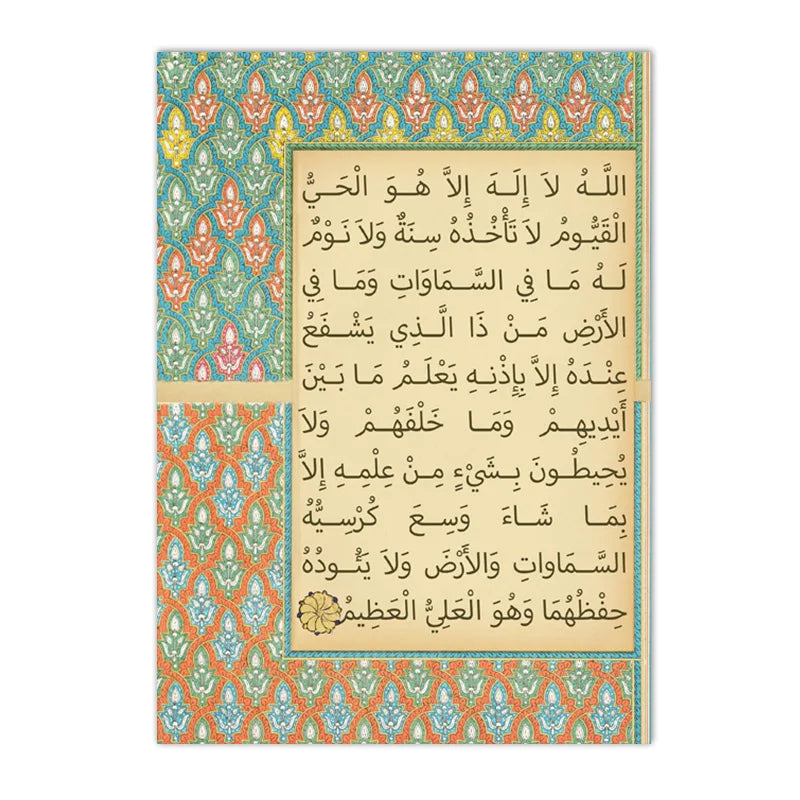 اللَّهُ لاَ إِلَهَ إِلاَّ هُوَ الْحَيُّ
الْقَيُّومُ لاَ تَأْخُذُهُ سِنَةٌ وَلاَ نَوْمٌ
لَهُ مَا فِي السَّمَاوَاتِ وَمَا فِي
الأَرْضِ مَنْ ذَا الَّذِي يَشْفَعُ
عِنْدَهُ إِلاَّ بِإِذْنِهِ يَعْلَمُ مَا بَيْنَ
أَيْدِيهِمْ وَمَا خَلْفَهُمْ وَلاَ
يُحِيطُونَ بِشَيْءٍ مِنْ عِلْمِهِ إِلاَّ
بِمَا شَاءَ وَسِعَ كُرْسِيُّهُ
السَّمَاوَاتِ وَالأَرْضَ وَلاَ يَئُودُهُ
حِفْظُهُمَا وَهُوَ الْعَلِيُّ الْعَظِيمُ